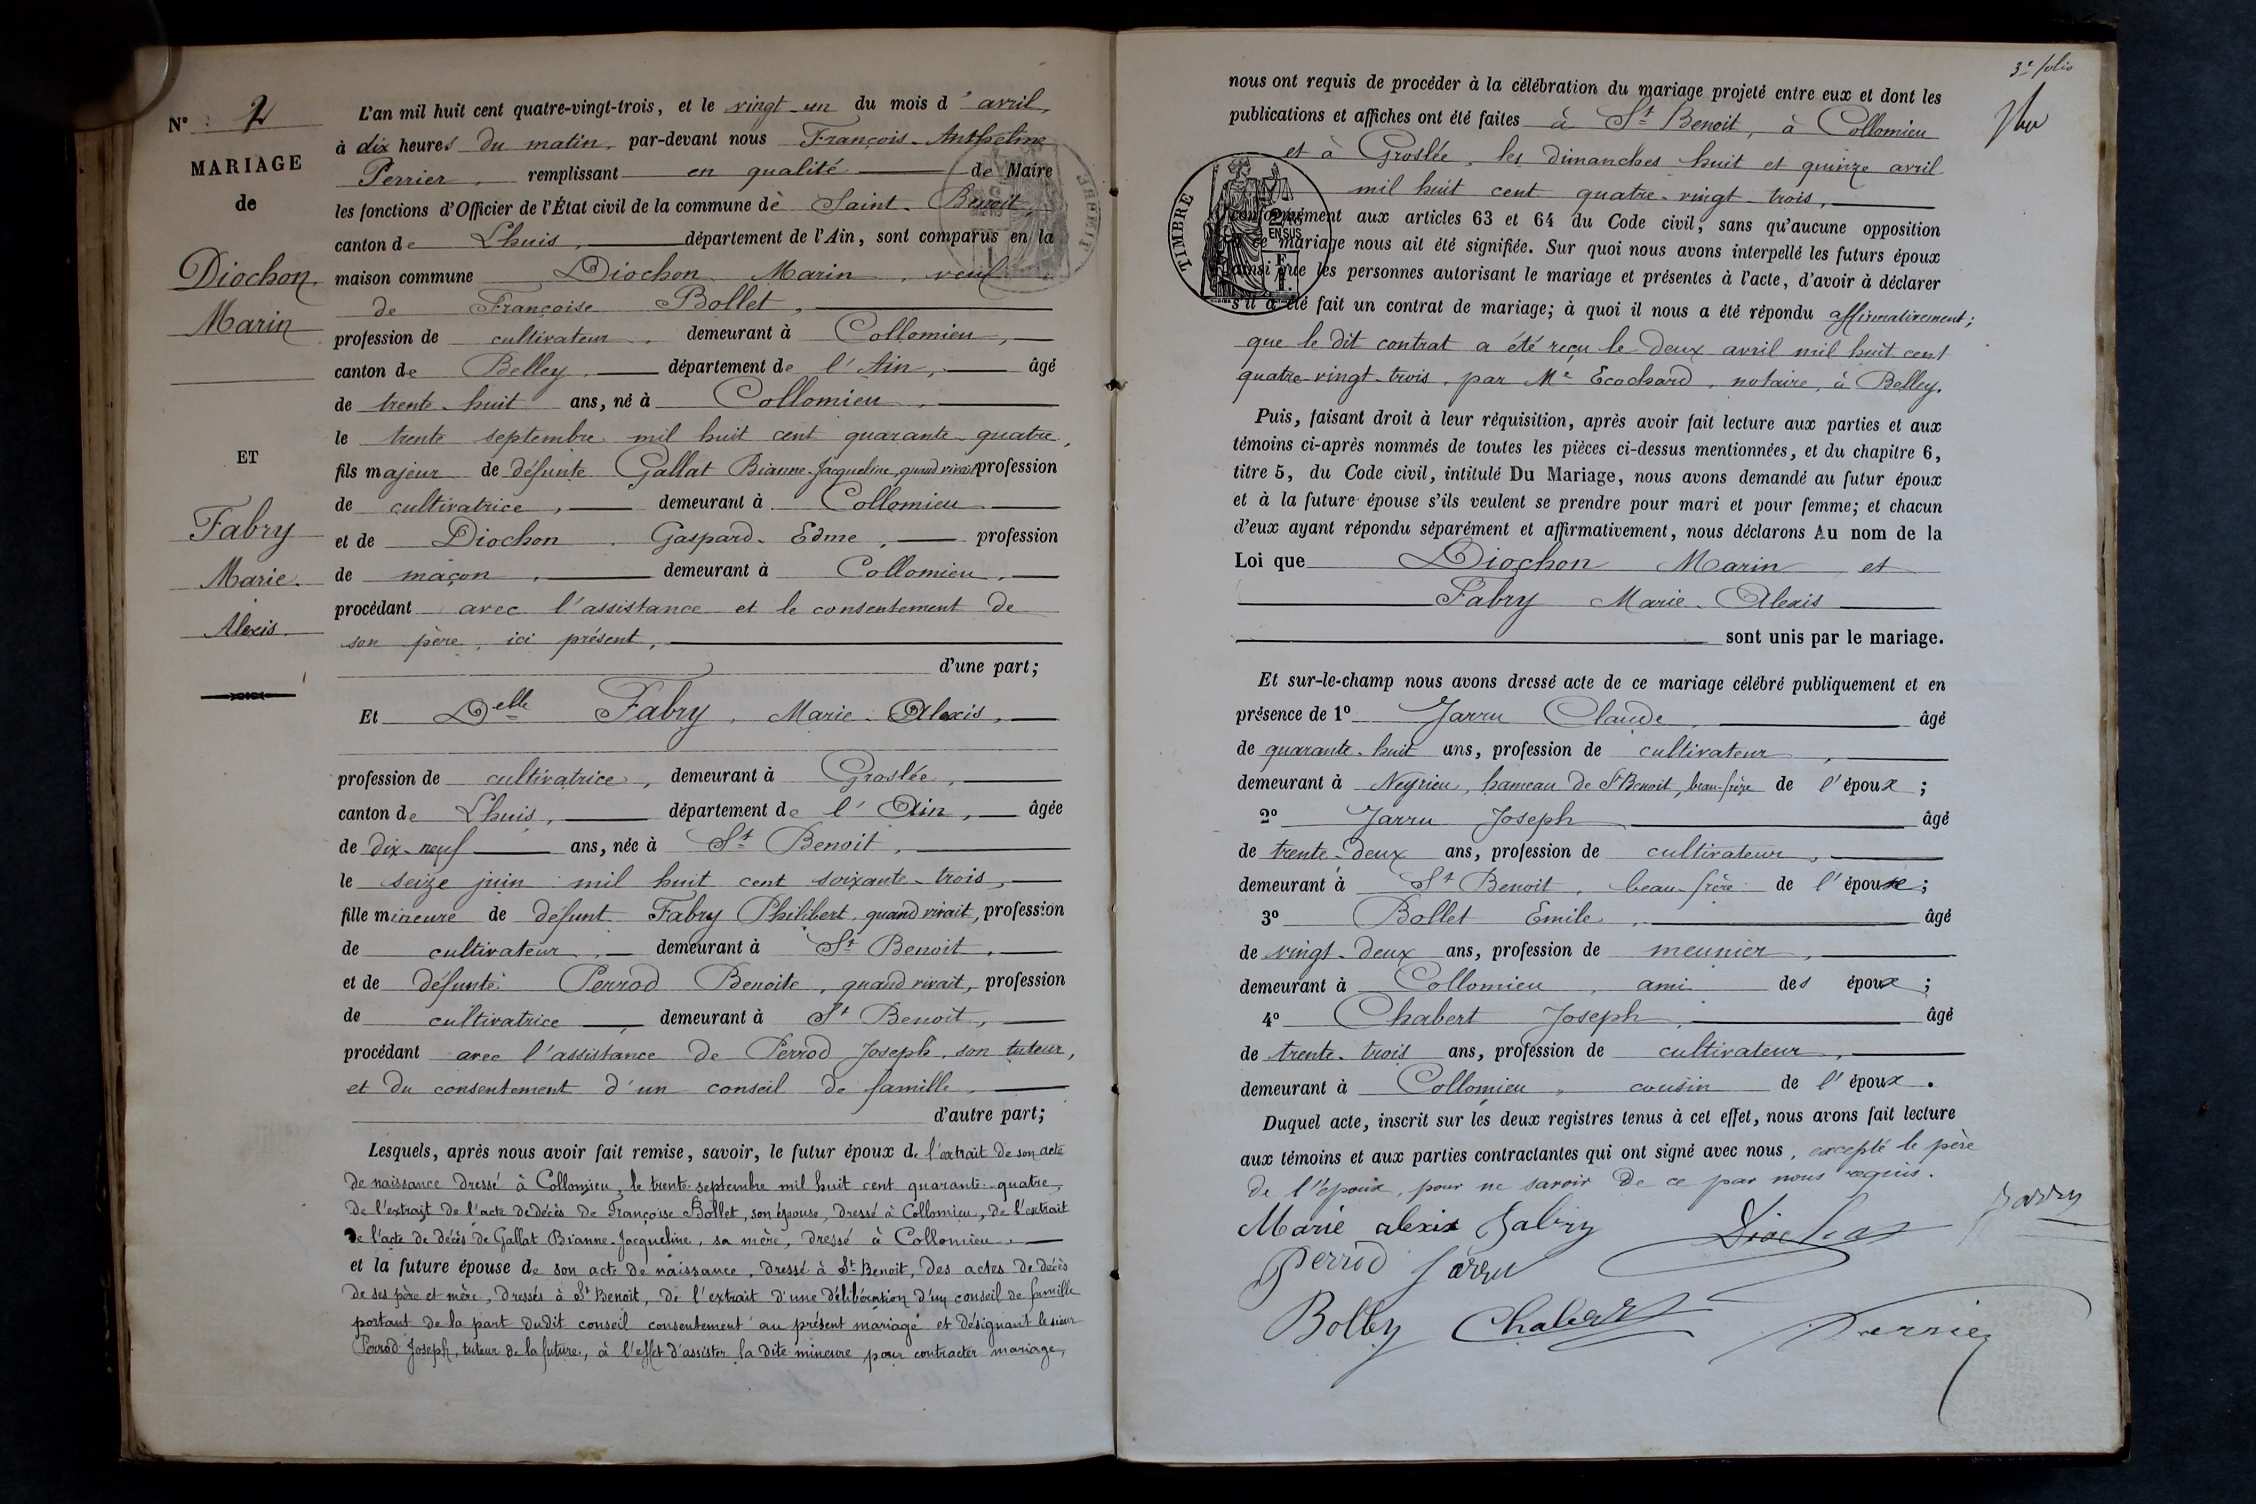 N° 2
MARIAGE
de
Diochon
Marin
ET
Fabry
Marie
Alexis
L'an mil huit cent quatre-vingt-trois, et le vingt-un du mois d'avril,
à dix heures du matin, par-devant nous François-Anthelme
Perrier, remplissant en qualité de Maire
les fonctions d'Officier de l'État civil de la commune de Saint-Benoit,
canton de Lhuis, département de l'Ain, sont comparus en la
maison commune Diochon Marin, veuf
de Françoise Bollet,
profession de cultivateur, demeurant à Collomieu,
canton de Belley, département de l'Ain, âgé
de trente-huit ans, né à Collomieu,
le trente septembre mil huit cent quarante-quatre,
fils majeur de défunte Gallat Bianne-Jacqueline, quand vivait profession
de cultivatrice, demeurant à Collomieu
et de Diochon Gaspard-Edme, profession
de maçon, demeurant à Collomieu,
procédant avec l'assistance et le consentement de
son père, ici présent,
d'une part;
Et Delle Fabry, Marie-Alexis,
profession de cultivatrice, demeurant à Groslée,
canton de Lhuis, département de l'Ain, âgée
de dix-neuf ans, née à St Benoit,
le seize juin mil huit cent soixante-trois,
fille mineure de défunt Fabry Philibert, quand vivait, profession
de cultivateur, demeurant à St Benoit,
et de défunte Perrod Benoite, quand vivait, profession
de cultivatrice, demeurant à St Benoit,
procédant avec l'assistance de Perrod Joseph, son tuteur,
et du consentement d'un conseil de famille,
d'autre part;
Lesquels, après nous avoir fait remise, savoir, le futur époux de l'extrait de son acte
de naissance dressé à Collomieu, le trente septembre mil huit cent quarante-quatre,
de l'extrait de l'acte de décès de Françoise Bollet, son épouse, dressé à Collomieu, de l'extrait
de l'acte de décès de Gallat Bianne-Jacqueline, sa mère, dressé à Collomieu,
et la future épouse de son acte de naissance, dressé à St Benoit, des actes de décès
de ses père et mère, dressés à St Benoit, de l'extrait d'une délibération d'un conseil de famille
portant de la part dudit conseil consentement au présent mariage et désignant le sieur
Perrod Joseph, tuteur de la future, à l'effet d'assister la dite mineure pour contracter mariage,
3e folio
nous ont requis de procéder à la célébration du mariage projeté entre eux et dont les
publications et affiches ont été faites à St Benoit, à Collomieu
et à Groslée, les dimanches huit et quinze avril
mil huit cent quatre-vingt-trois,
TIMBRE
conformément aux articles 63 et 64 du Code civil, sans qu'aucune opposition
à ce mariage nous ait été signifiée. Sur quoi nous avons interpellé les futurs époux
EN SUS
ainsi que les personnes autorisant le mariage et présentes à l'acte, d'avoir à déclarer
s'il a été fait un contrat de mariage; à quoi il nous a été répondu affirmativement;
que le dit contrat a été reçu le deux avril mil huit cent
quatre-vingt-trois, par Me Ecochard, notaire, à Belley.
Puis, faisant droit à leur réquisition, après avoir fait lecture aux parties et aux
témoins ci-après nommés de toutes les pièces ci-dessus mentionnées, et du chapitre 6,
titre 5, du Code civil, intitulé Du Mariage, nous avons demandé au futur époux
et à la future épouse s'ils veulent se prendre pour mari et pour femme; et chacun
d'eux ayant répondu séparément et affirmativement, nous déclarons Au nom de la
Loi que Diochon Marin et
Fabry Marie-Alexis
sont unis par le mariage.
Et sur-le-champ nous avons dressé acte de ce mariage célébré publiquement et en
présence de 1° Jarru Claude, âgé
de quarante-huit ans, profession de cultivateur,
demeurant à Neyrieu, hameau de St Benoit, beau-frère de l'époux;
2° Jarru Joseph âgé
de trente-deux ans, profession de cultivateur,
demeurant à St Benoit, beau-frère de l'épouse;
3° Bollet Emile, âgé
de vingt-deux ans, profession de meunier,
demeurant à Collomieu, ami des époux;
4° Chabert Joseph, âgé
de trente-trois ans, profession de cultivateur,
demeurant à Collomieu, cousin de l'époux.
Duquel acte, inscrit sur les deux registres tenus à cet effet, nous avons fait lecture
aux témoins et aux parties contractantes qui ont signé avec nous, excepté le père
de l'époux, pour ne savoir de ce par nous requis.
Marie alexis Fabry Diochon Jarru
Perrod Jarru
Bolley Chabert Perrier